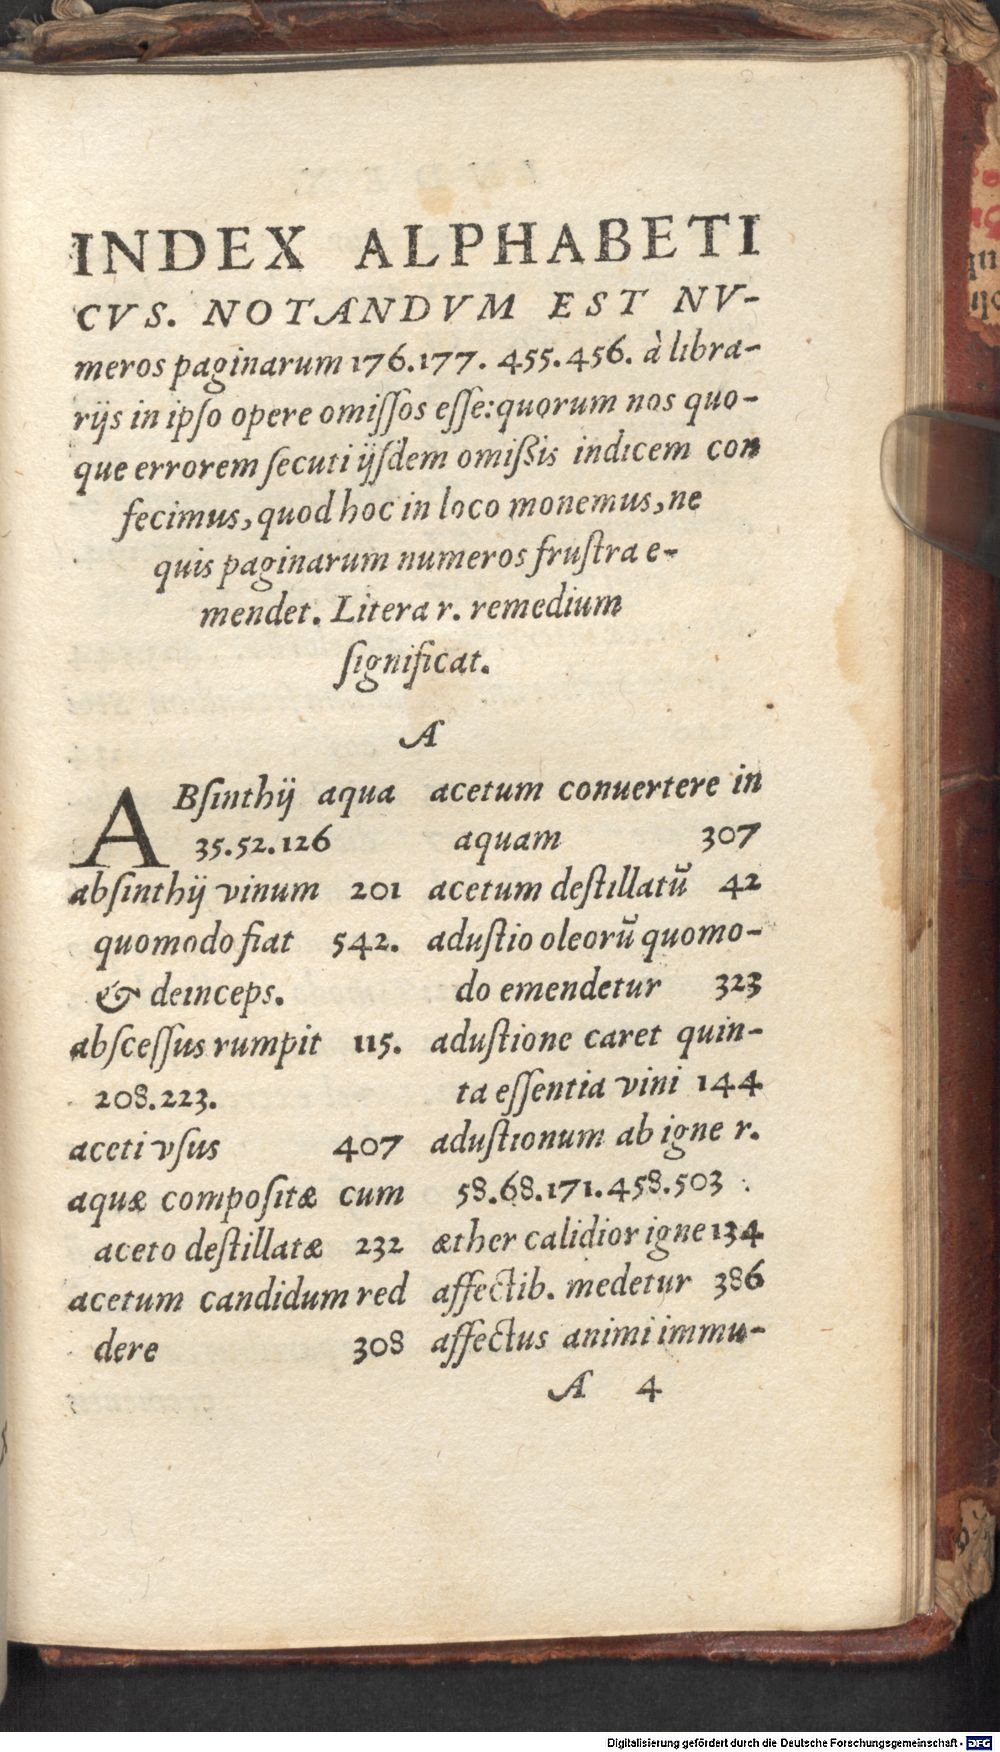 INDEX ALPHABETI
CVS. NOTANDVM EST NV-
meros paginarum 176.177. 455.456. à libra-
rijs in ipſo opere omiſſos eſſe: quorum nos quo-
que errorem ſecuti ijſdem omiſsis indicem con
fecimus, quod hoc in loco monemus, ne
quis paginarum numeros fruſtra e-
mendet. Litera r. remedium
ſignificat.
A
ABſinthij aqua
35.52.126
abſinthij vinum 201
quomodo fiat 542.
& deinceps.
abſceſſus rumpit 115.
208.223.
aceti vſus 407
aquæ compoſitæ cum
aceto deſtillatæ 232
acetum candidum red
dere 308
acetum conuertere in
aquam 307
acetum deſtillatū 42
aduſtio oleorū quomo-
do emendetur 323
aduſtione caret quin-
ta eſſentia vini 144
aduſtionum ab igne r.
58.68.171.458.503
æther calidior igne 134
affectib. medetur 386
affectus animi immu-
A 4
Digitalisierung gefördert durch die Deutsche Forschungsgemeinschaft - DFG